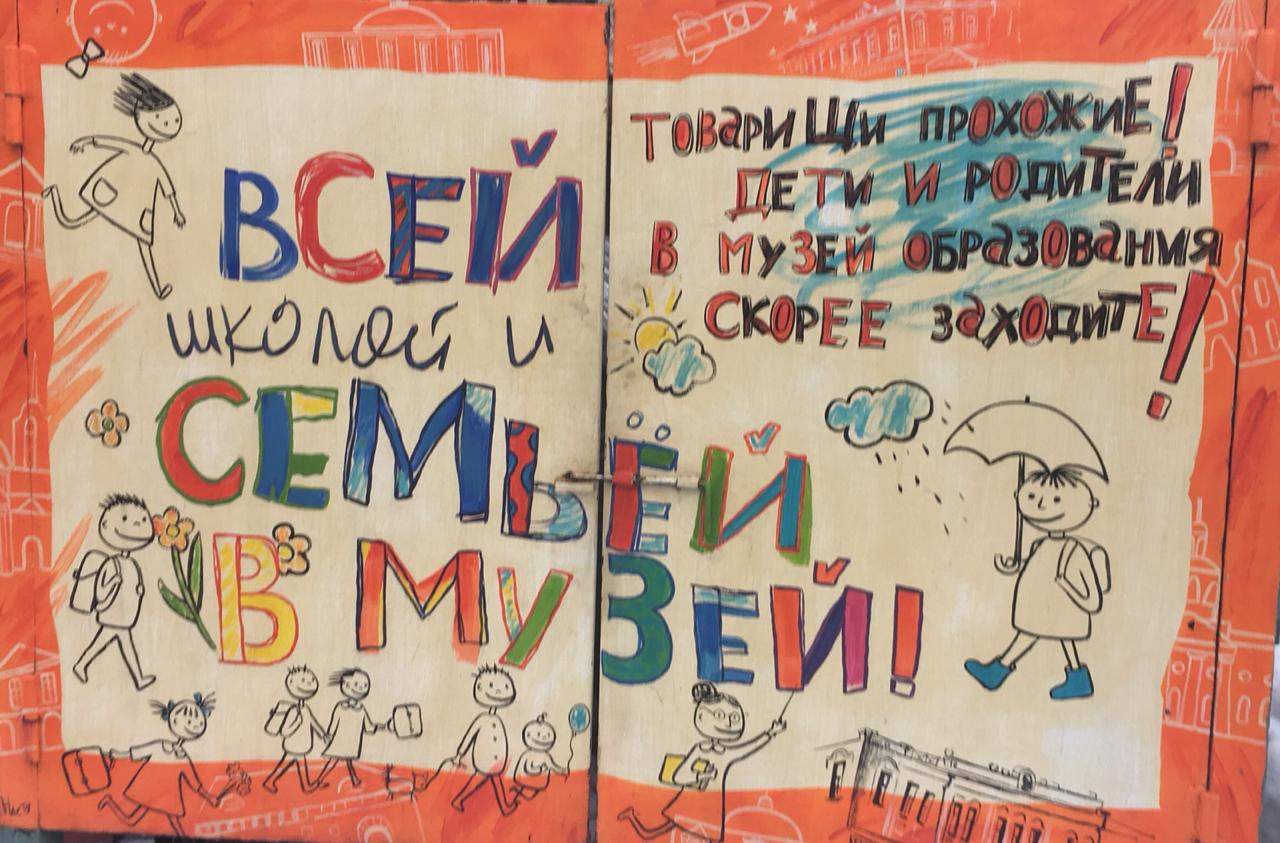 ВСЕЙ
школой и
СЕМЬЁЙ
В МУЗЕЙ!
ТОВаРИЩИ ПРОХОЖИЕ!
ДЕТИ И РОДИТЕЛИ
В МУЗЕЙ ОБРаЗОВаНИЯ
СКОРЕЕ ЗаХОДИТЕ!